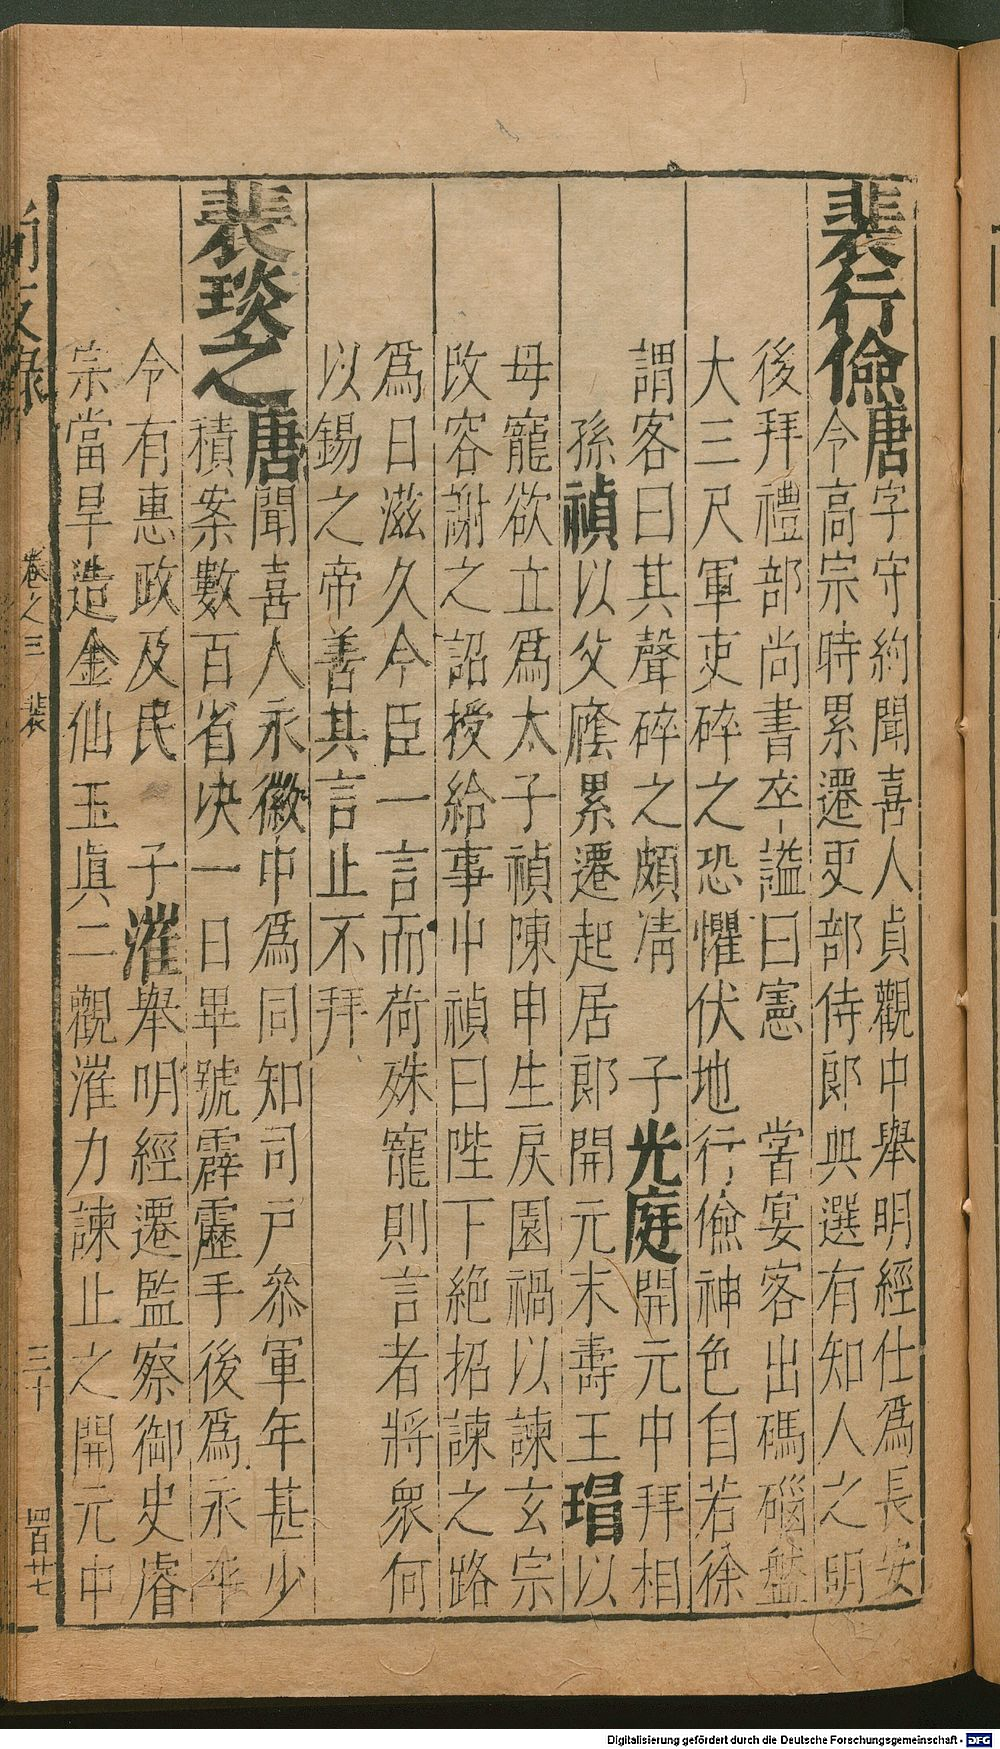 裴行儉唐字守約聞喜人貞觀中舉明經仕爲長安
令高宗時累遷吏部侍郎典選有知人之明
後拜禮部尚書卒謚曰憲 嘗宴客出碼碯盤
大三尺軍吏碎之恐懼伏地行儉神色自若徐
謂客曰其聲碎之頗凊 子光庭開元中拜相
孫禎以父廕累遷起居郎開元末壽王瑁以
母寵欲立爲太子禎陳申生戾園禍以諫玄宗
改容謝之詔授給事中禎曰陛下絶招諫之路
爲日滋久今臣一言而荷殊寵則言者將衆何
以錫之帝善其言止不拜
裴琰之唐聞喜人永徽中爲同知司戸叅軍年甚少
積案數百省决一日畢號霹靂手後爲永年
令有惠政及民 子漼舉明經遷監察御史睿
宗當旱造金仙玉眞二觀漼力諫止之開元中
卷之三 裴
三十
四百廿七
Digitalisierung gefördert durch die Deutsche Forschungsgemeinschaft - DFG